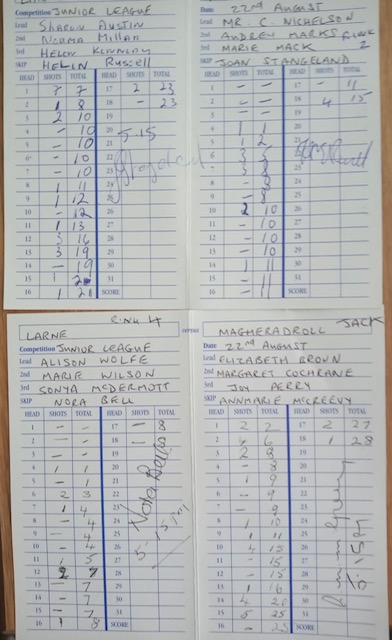 Competition JUNIOR LEAGUE
Lead SHARON AUSTIN
2nd NORMA Millan
3rd HELEN KENNEDY
SKIP HELEN Russell
HEAD SHOTS TOTAL HEAD SHOTS TOTAL
1 7 7 17 2 23
2 1 8 18 - 23
3 2 10 19
4 - 10 20
5 - 10 21
6 - 10 22
7 - 10 23
8 1 11 24
9 1 12 25
10 - 12 26
11 1 13 27
12 3 16 28
13 3 19 29
14 - 19 30
15 1 20 31
16 1 21 SCORE
5-15
Date 22nd AUGUST
Lead MR. C. NICHELSON
2nd AUDREY MARKS RINK
3rd MARIE MACK 2
SKIP JOAN STANGELAND
HEAD SHOTS TOTAL HEAD SHOTS TOTAL
1 - - 17 - 11
2 - - 18 4 15
3 - - 19
4 1 1 20
5 1 2 21
6 22
7 23
8 - 8 24
9 - 8 25
10 2 10 26
11 - 10 27
12 - 10 28
13 - 10 29
14 1 11 30
15 - 11 31
16 - 11 SCORE
RINK 4
LARNE
Competition JUNIOR LEAGUE
Lead ALISON WOLFE
2nd MARIE WILSON
3rd SONYA McDERMOTT
SKIP NORA BELL
HEAD SHOTS TOTAL HEAD SHOTS TOTAL
1 - - 17 - 8
2 - - 18 - 8
3 - - 19
4 1 1 20
5 - 1 21
6 2 3 22
7 1 4 23
8 - 4 24
9 - 4 25
10 - 4 26
11 1 5 27
12 2 7 28
13 - 7 29
14 - 7 30
15 - 7 31
16 1 8 SCORE
Nora Bell
versus
MAGHERADROLL JACK
Date 22nd AUGUST
Lead ELIZABETH BROWN
2nd MARGARET COCHRANE
3rd JOY PERRY
SKIP ANNMARIE McCREEVY
HEAD SHOTS TOTAL HEAD SHOTS TOTAL
1 2 2 17 2 27
2 4 6 18 1 28
3 2 8 19
4 - 8 20
5 1 9 21
6 - 9 22
7 - 9 23
8 1 10 24
9 1 11 25
10 4 15 26
11 - 15 27
12 - 15 28
13 1 16 29
14 4 20 30
15 5 25 31
16 - 25 SCORE